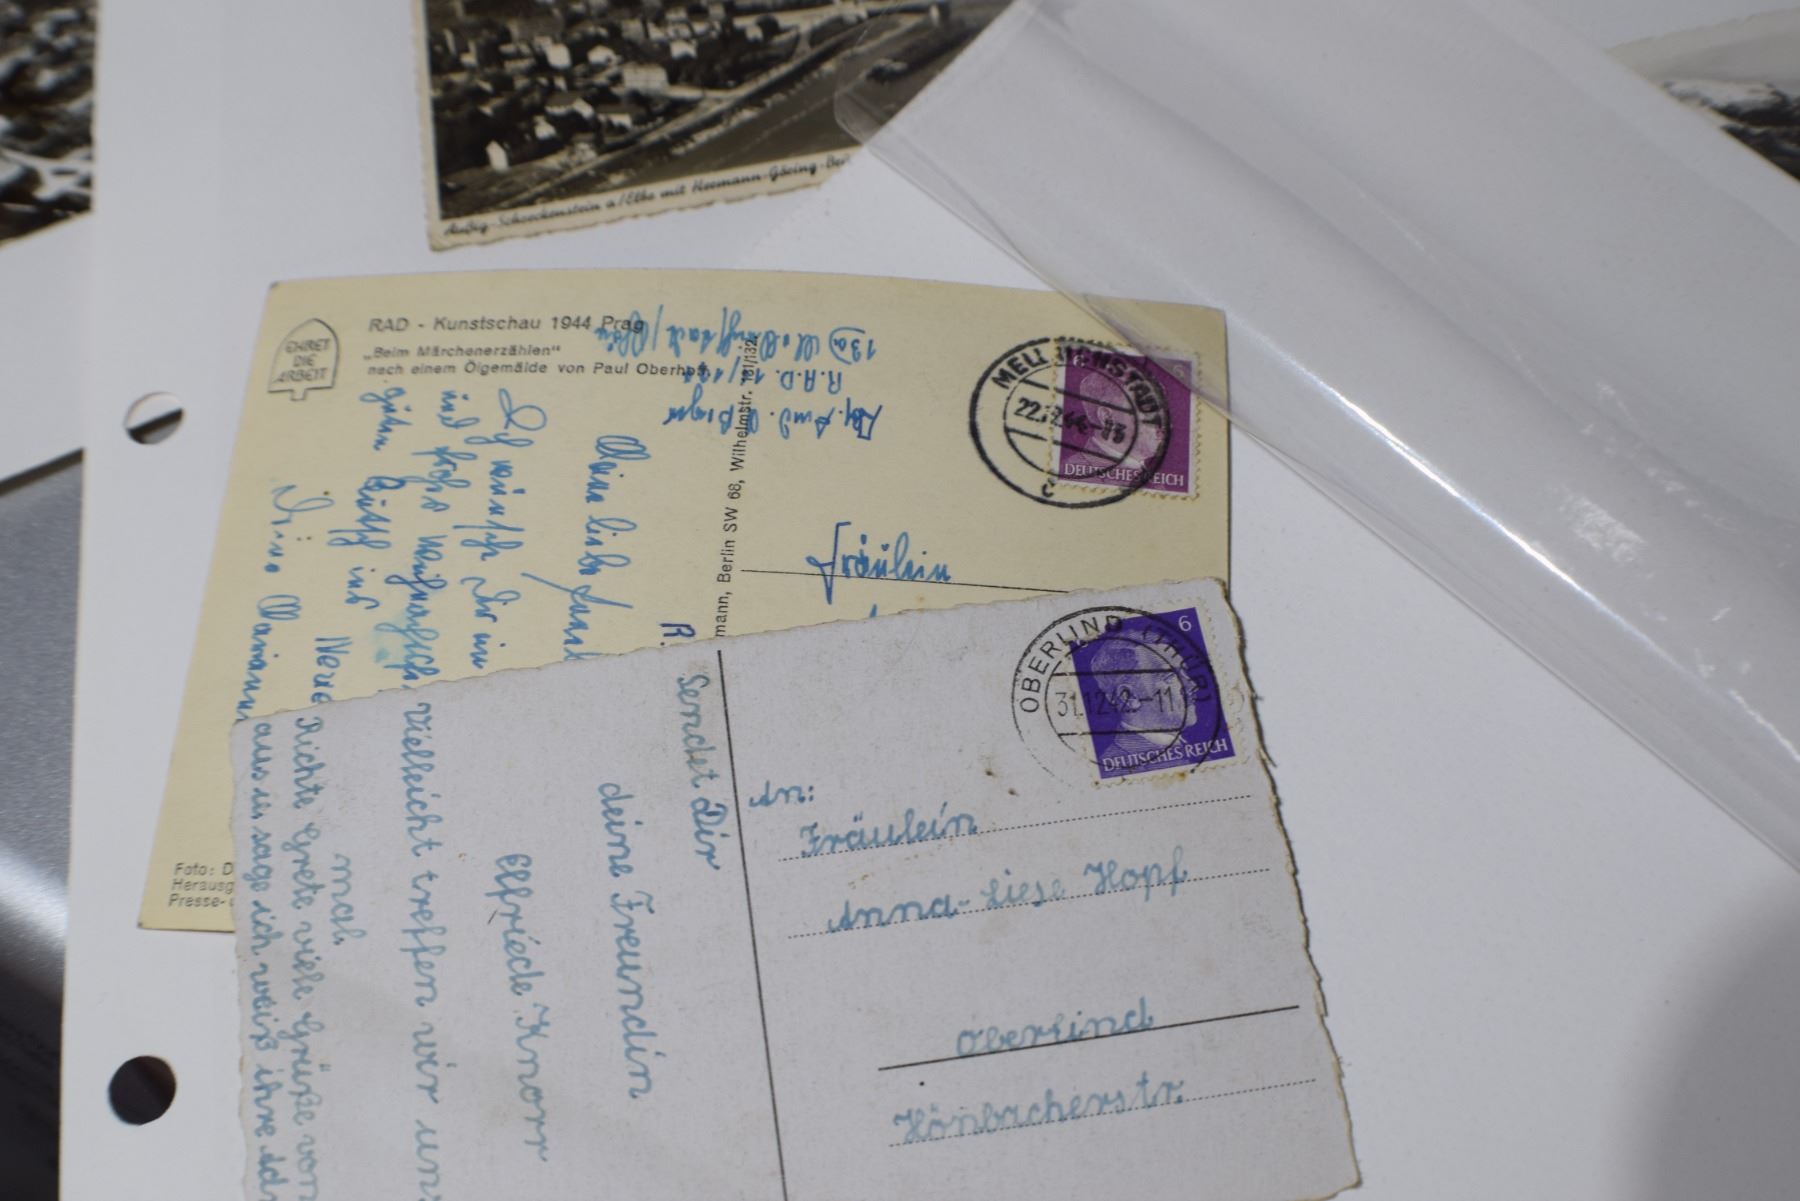 Außig-Schreckenstein a/Elbe mit Hermann-Göring-
EHRET
DIE
ARBEIT
RAD - Kunstschau 1944 Prag
„Beim Märchenerzählen“
nach einem Ölgemälde von Paul
R.A.D.
MELLRICHSTADT
22.12.44-13
c
6
DEUTSCHES REICH
Meine liebe
Ich wünsche Dir ein
und frohes Weihnachts
guten Rutsch ins
Neue
Deine Marianne
mann, Berlin SW 68, Wilhelmstr. 131/132
Fräulein
Foto: D
Herausg
Presse-
R.
Sendet Dir
deine Freundin
Elfriede Knorr
vielleicht treffen wir uns
mal
Richte Grete viele Grüße von
aus u sage ich weiß ihre
OBERLIND (THÜR)
31.12.42-11
6
DEUTSCHES REICH
An:
Fräulein
Anna-Liese Hopf
Oberlind
Hönbacherstr.